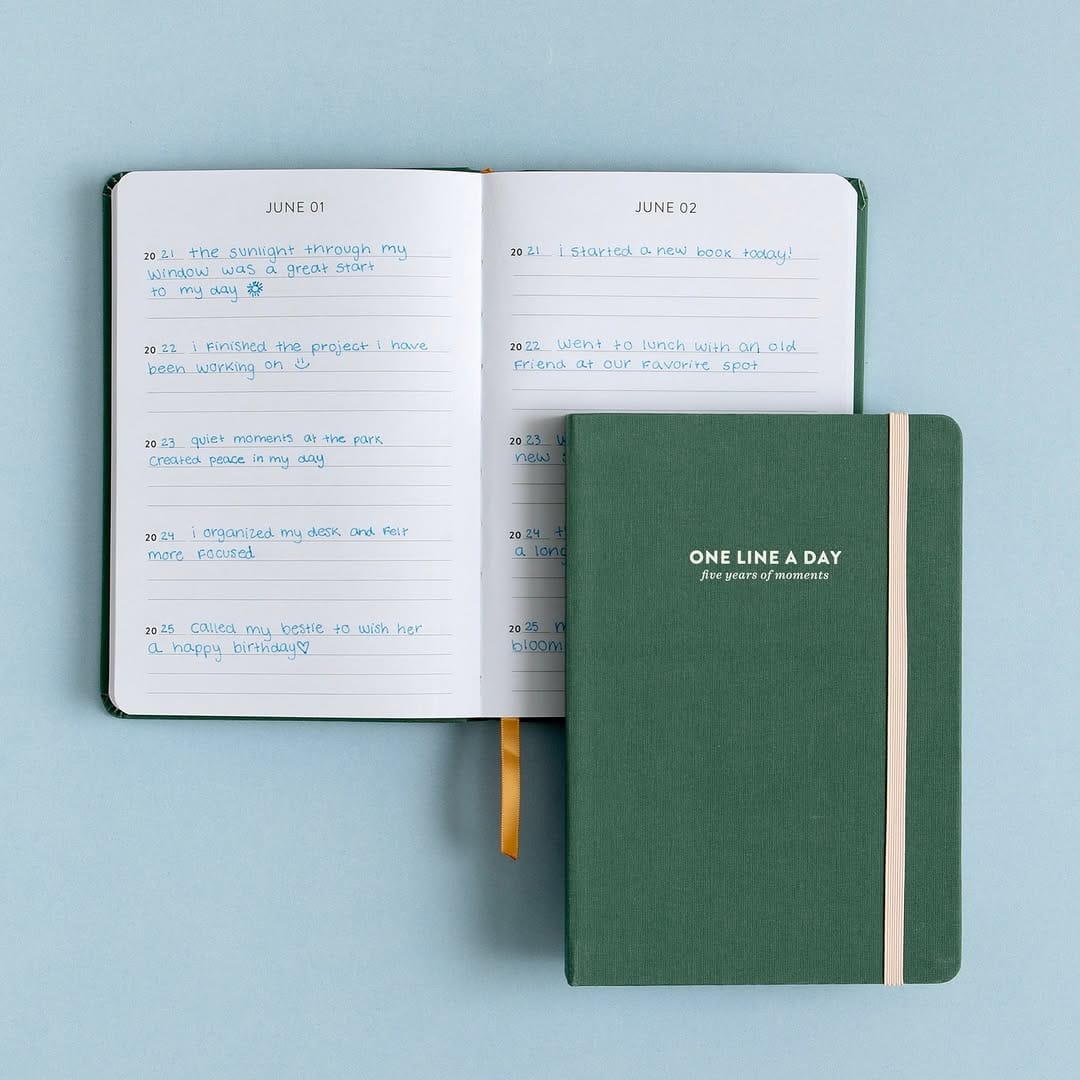 JUNE 01
20 21 the sunlight through my
window was a great start
to my day
20 22 i finished the project i have
been working on
20 23 quiet moments at the park
created peace in my day
20 24 i organized my desk and felt
more focused
20 25 called my bestie to wish her
a happy birthday♡
JUNE 02
20 21 i started a new book today!
20 22 went to lunch with an old
friend at our favorite spot
20 23
new
20 24
a long
20 25
bloom
ONE LINE A DAY
five years of moments